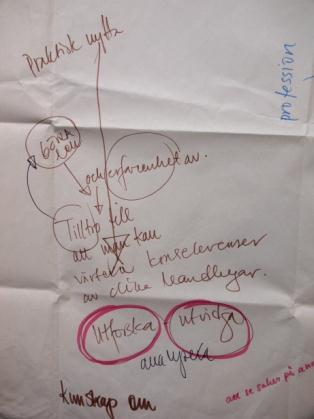 Praktisk nytta
profession
och erfarenhet av.
Tilltro till
att man kan
värdera konsekvenser
av olika handlingar.
Utforska - utvidga
analysera
Kunskap om
att se saker på